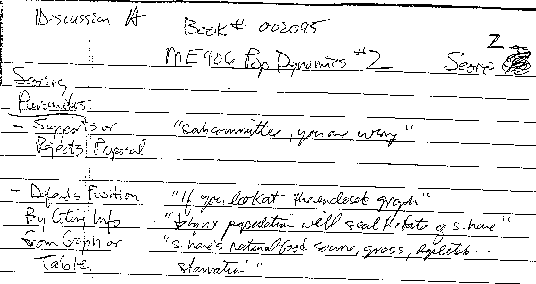 Discussion A
Book # 002095
ME906 Pop Dynamics #2
Score 2
Scoring
Parameters:
- Supports or "subcommittee, you are wrong"
Rejects Proposal
- Defends Position "If you look at the enclosed graph"
By Citing Info population will seal the fate of s. hare"
from Graph or "s. hare's natural food source, grass, deplete...
Table starvation"